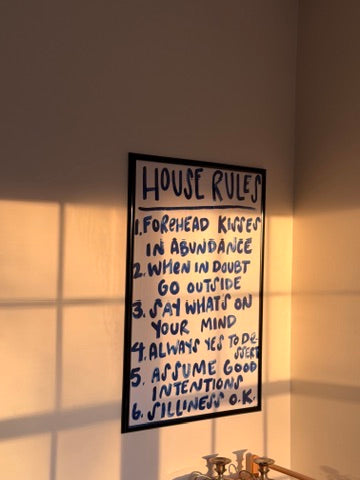 HOUSE RULES
1. FOREHEAD KISSES
IN ABUNDANCE
2. WHEN IN DOUBT
GO OUTSIDE
3. SAY WHATS ON
YOUR MIND
4. ALWAYS YES TO DE-
SSERT
5. ASSUME GOOD
INTENTIONS
6. SILLINESS O.K.